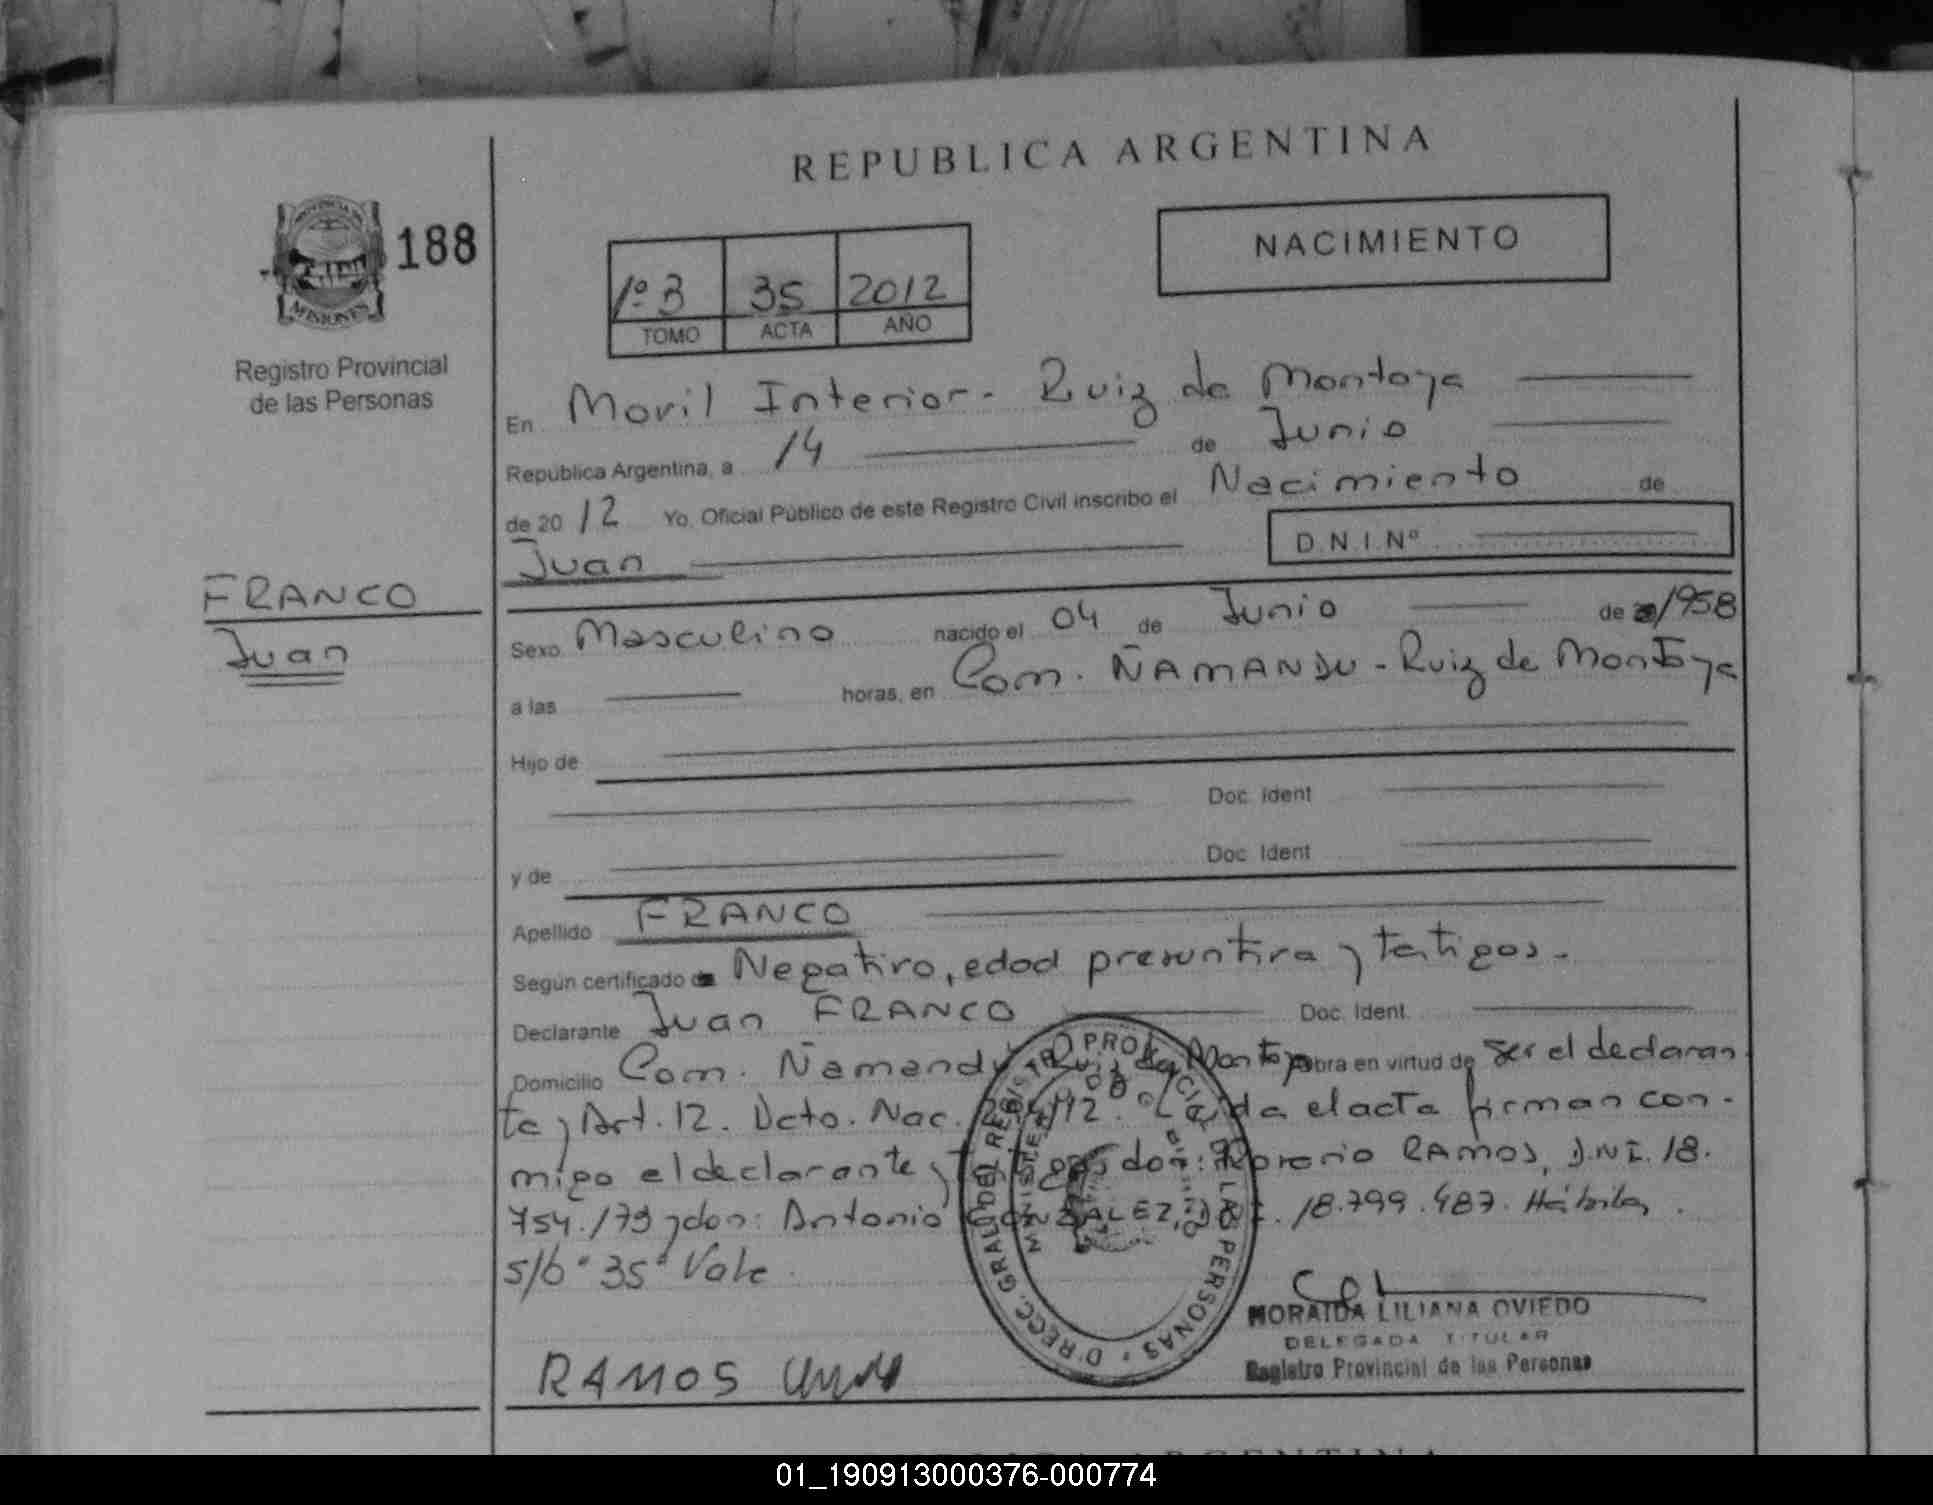 REPUBLICA ARGENTINA
PROVINCIA DE
MISIONES
188
Registro Provincial
de las Personas
NACIMIENTO
1º 3 35 2012
TOMO ACTA AÑO
En Movil Interior - Ruiz de Montoya
Republica Argentina, a 14 de Junio
de 20 12 Yo, Oficial Público de este Registro Civil inscribo el Nacimiento de
Juan D.N.I.Nº
FRANCO
Juan
Sexo Masculino nacido el 04 de Junio de 1958
a las horas, en Com. ÑAMANDU - Ruiz de Montoya
Hijo de
Doc. Ident
y de Doc. Ident
Apellido FRANCO
Según certificado de Negativo, edad presuntiva y testigos.-
Declarante Juan FRANCO Doc. Ident.
Domicilio Com. Ñamandu Ruiz de Montoya obra en virtud de ser el declaran
te y Art. 12. Dcto. Nac. /12. Leida el acta firman con-
migo el declarante y testigos don: Horacio RAMOS, D.N.I. 18.
754.179 y don: Antonio GONZALEZ, D.N.I. 18.799.487. Hábiles.
s/b "35" Vale.
DIRECC. GRAL. DEL REGISTRO PROVINCIAL DE LAS PERSONAS
MORAIDA LILIANA OVIEDO
DELEGADA TITULAR
Registro Provincial de las Personas
RAMOS
01_190913000376-000774